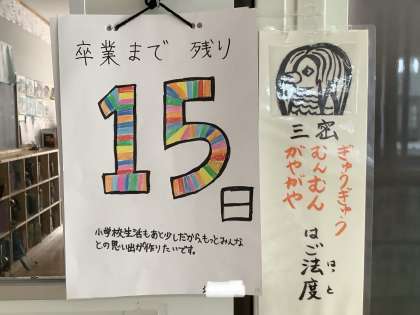 卒業まで 残り
15
日
小学校生活もあと少しだから、もっとみんな
との思い出が作りたいです。
三密
ぎゅうぎゅう
むんむん
がやがや
はご法度
はっと